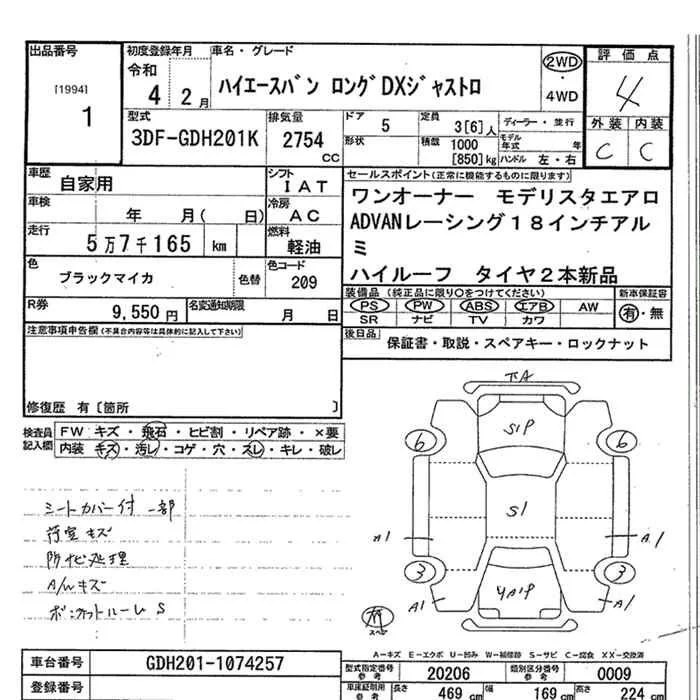 出品番号
[1994]
1
初度登録年月
令和
4 2月
車名・グレード
ハイエースバン ロングDXジャストロ
2WD
・
4WD
評価点
4
外装 内装
C C
型式
3DF-GDH201K
排気量
2754
CC
ドア 5
形状
定員
3[6]人
積載 1000
[850]kg
ディーラー・並行
モデル年式 年
ハンドル 左・右
車歴
自家用
シフト
IAT
車検
年 月( 日)
冷房
AC
走行
5万7千165 km
燃料
軽油
色
ブラックマイカ
色替
色コード
209
R券
9,550円
名変通知期限
月 日
セールスポイント(正常に機能するものに限ります)
ワンオーナー モデリスタエアロ
ADVANレーシング18インチアル
ミ
ハイルーフ タイヤ2本新品
装備品 (純正品に限り○をつけてください)
PS PW ABS エアB AW
SR ナビ TV カワ
新車保証書
有・無
後日品
保証書・取説・スペアキー・ロックナット
注意事項申告欄(不具合内容等は具体的に記入して下さい)
修復歴 有〔箇所 〕
検査員
記入欄
FW キズ・飛石・ヒビ割・リペア跡・×要
内装 キズ・汚レ・コゲ・穴・スレ・キレ・破レ
シートカバー付 一部
荷室キズ
防サビ処理
A/Wキズ
ボンネットルーム S
下A
S1P
6 6
S1
A1 A1
3 3
YA1P
A1 A1
スペア
A－キズ E－エクボ U－凹み W－補修跡 S－サビ C－腐食 XX－交換済
車台番号
GDH201-1074257
登録番号
型式指定番号
参考
20206
類別区分番号
参考
0009
車庫証明用
参考
長さ
469 cm
幅
169 cm
高さ
224 cm